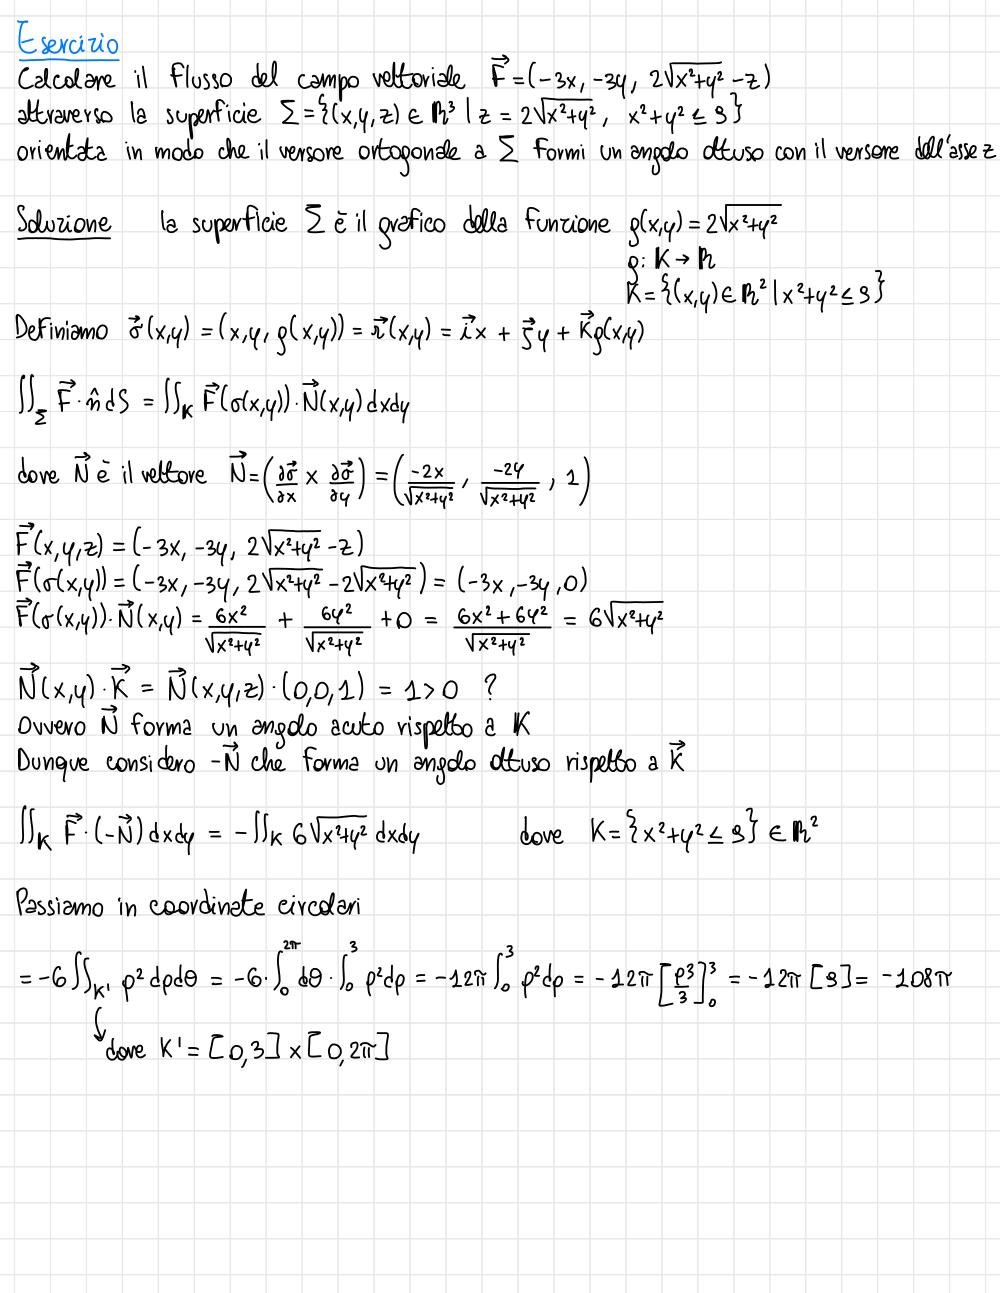 Esercizio
Calcolare il flusso del campo vettoriale F⃗ = (-3x, -3y, 2√(x²+y²) - z)
attraverso la superficie Σ = {(x,y,z) ∈ ℝ³ | z = 2√(x²+y²), x²+y² ≤ 9}
orientata in modo che il versore ortogonale a Σ formi un angolo ottuso con il versore dell'asse z
Soluzione la superficie Σ è il grafico della funzione g(x,y) = 2√(x²+y²)
g: K → ℝ
K = {(x,y) ∈ ℝ² | x²+y² ≤ 9}
Definiamo σ⃗(x,y) = (x,y, g(x,y)) = r⃗(x,y) = i⃗x + j⃗y + k⃗g(x,y)
∬_Σ F⃗·n̂ dS = ∬_K F⃗(σ(x,y))·N⃗(x,y) dxdy
dove N⃗ è il vettore N⃗ = (∂σ⃗/∂x × ∂σ⃗/∂y) = (-2x/√(x²+y²), -2y/√(x²+y²), 1)
F⃗(x,y,z) = (-3x, -3y, 2√(x²+y²) - z)
F⃗(σ(x,y)) = (-3x, -3y, 2√(x²+y²) - 2√(x²+y²)) = (-3x, -3y, 0)
F⃗(σ(x,y))·N⃗(x,y) = 6x²/√(x²+y²) + 6y²/√(x²+y²) + 0 = (6x²+6y²)/√(x²+y²) = 6√(x²+y²)
N⃗(x,y)·K⃗ = N⃗(x,y,z)·(0,0,1) = 1 > 0 ?
Ovvero N⃗ forma un angolo acuto rispetto a K
Dunque considero -N⃗ che forma un angolo ottuso rispetto a K⃗
∬_K F⃗·(-N⃗) dxdy = -∬_K 6√(x²+y²) dxdy dove K = {x²+y² ≤ 9} ∈ ℝ²
Passiamo in coordinate circolari
= -6 ∬_K' ρ² dρdθ = -6·∫₀^2π dθ·∫₀³ ρ²dρ = -12π ∫₀³ ρ²dρ = -12π [ρ³/3]₀³ = -12π [9] = -108π
dove K' = [0,3] × [0,2π]